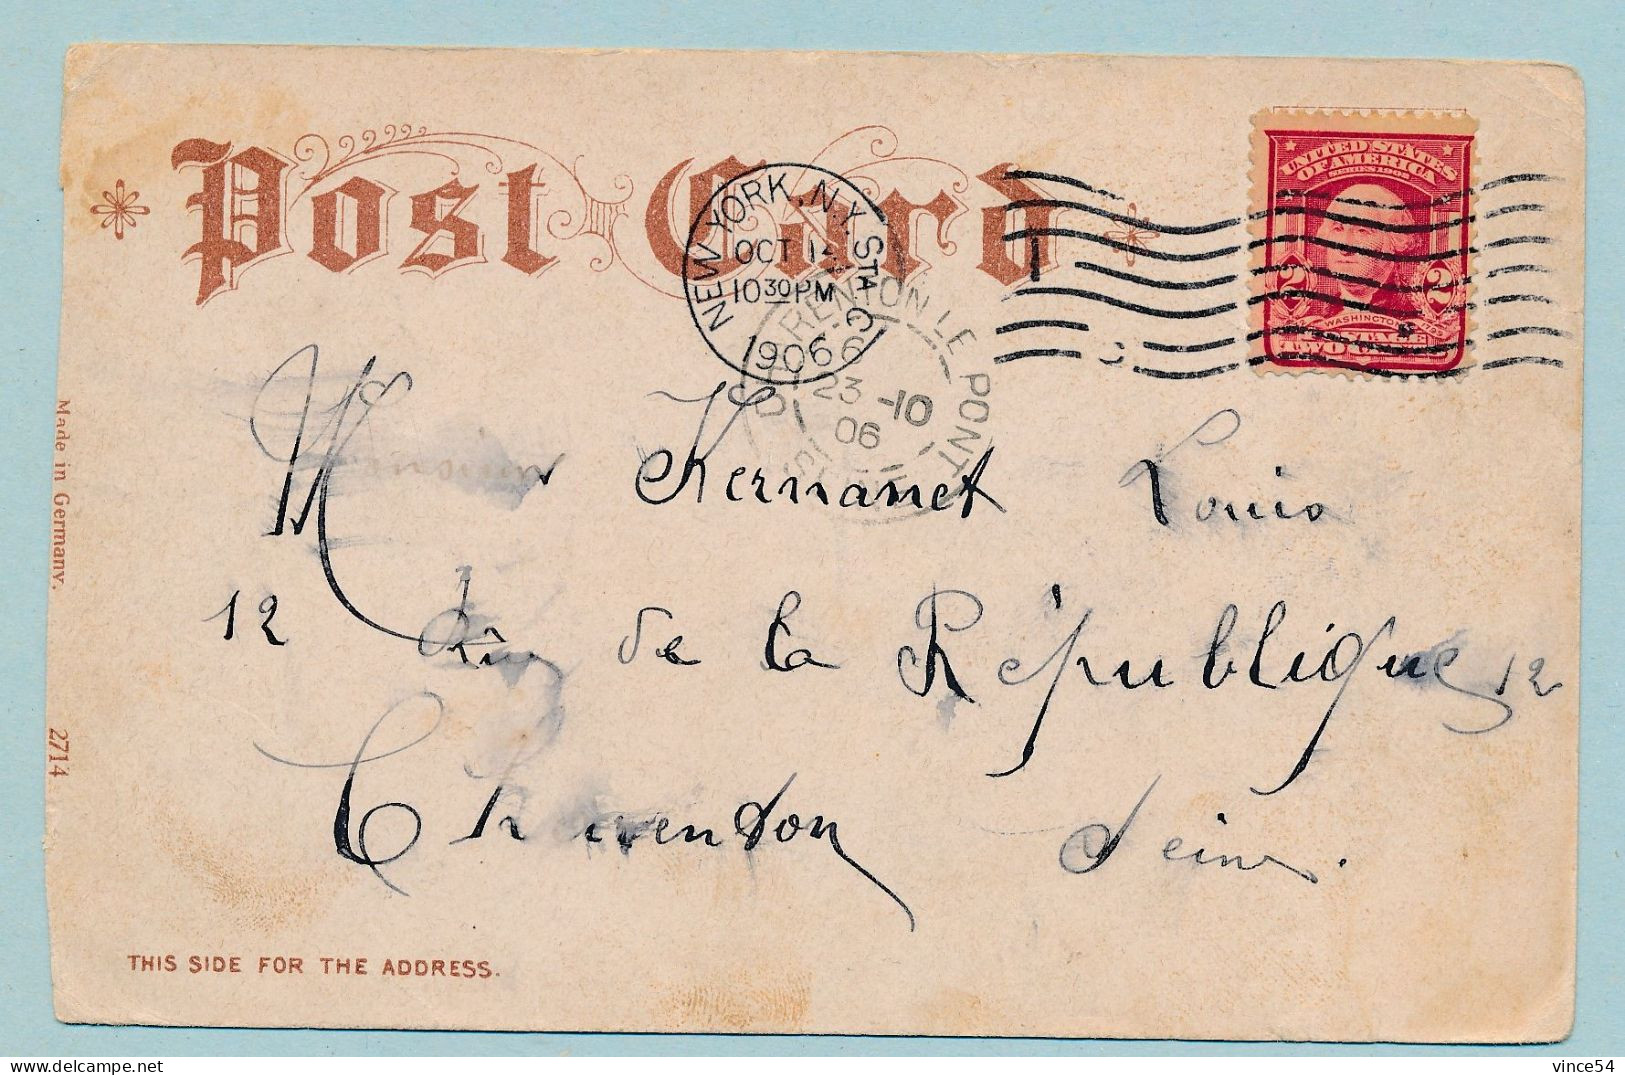 Post Card
NEW YORK, N.Y. STA. C
OCT 14
10 30 PM
1906
CHARENTON LE PONT
6
23 -10
06
SEINE
UNITED STATES
OF AMERICA
SERIES 1902
2 2
WASHINGTON
POSTAGE
TWO
Monsieur
M Kernanet Louis
12 Rue de la République 12
Charenton Seine.
THIS SIDE FOR THE ADDRESS.
Made in Germany.
2714
vince54